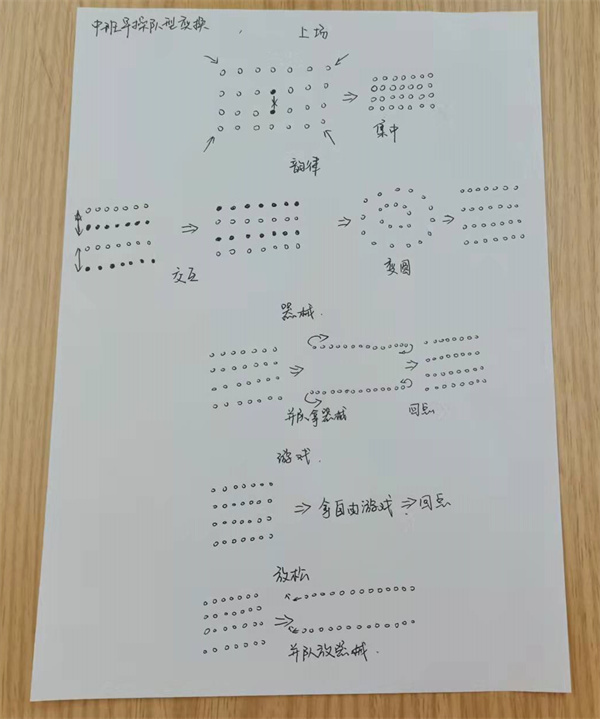 中班早操队型变换
上场
集中
韵律
交互
变圆
器械
并队拿器械
回点
游戏
拿自由游戏
回点
放松
并队放器械